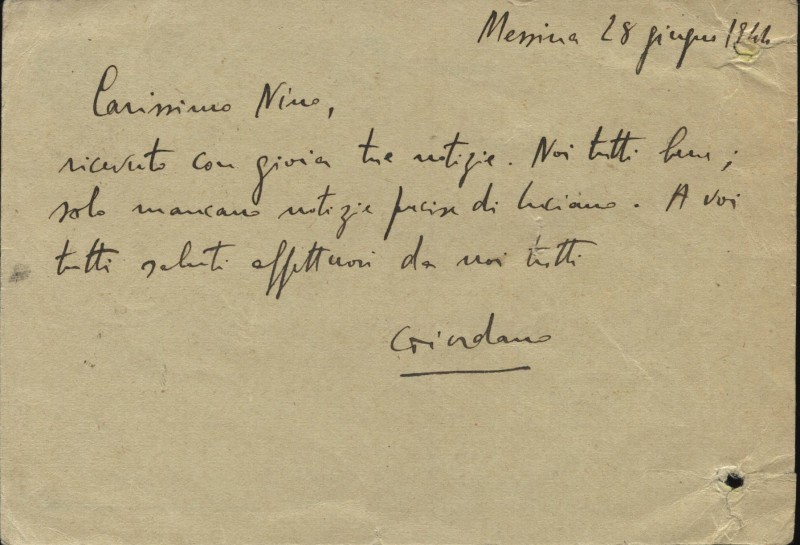 Messina 28 giugno 1944
Carissimo Nino,
ricevuto con gioia tue notizie. Noi tutti bene;
solo mancano notizie precise di Luciano. A voi
tutti saluti affettuosi da noi tutti
Giordano